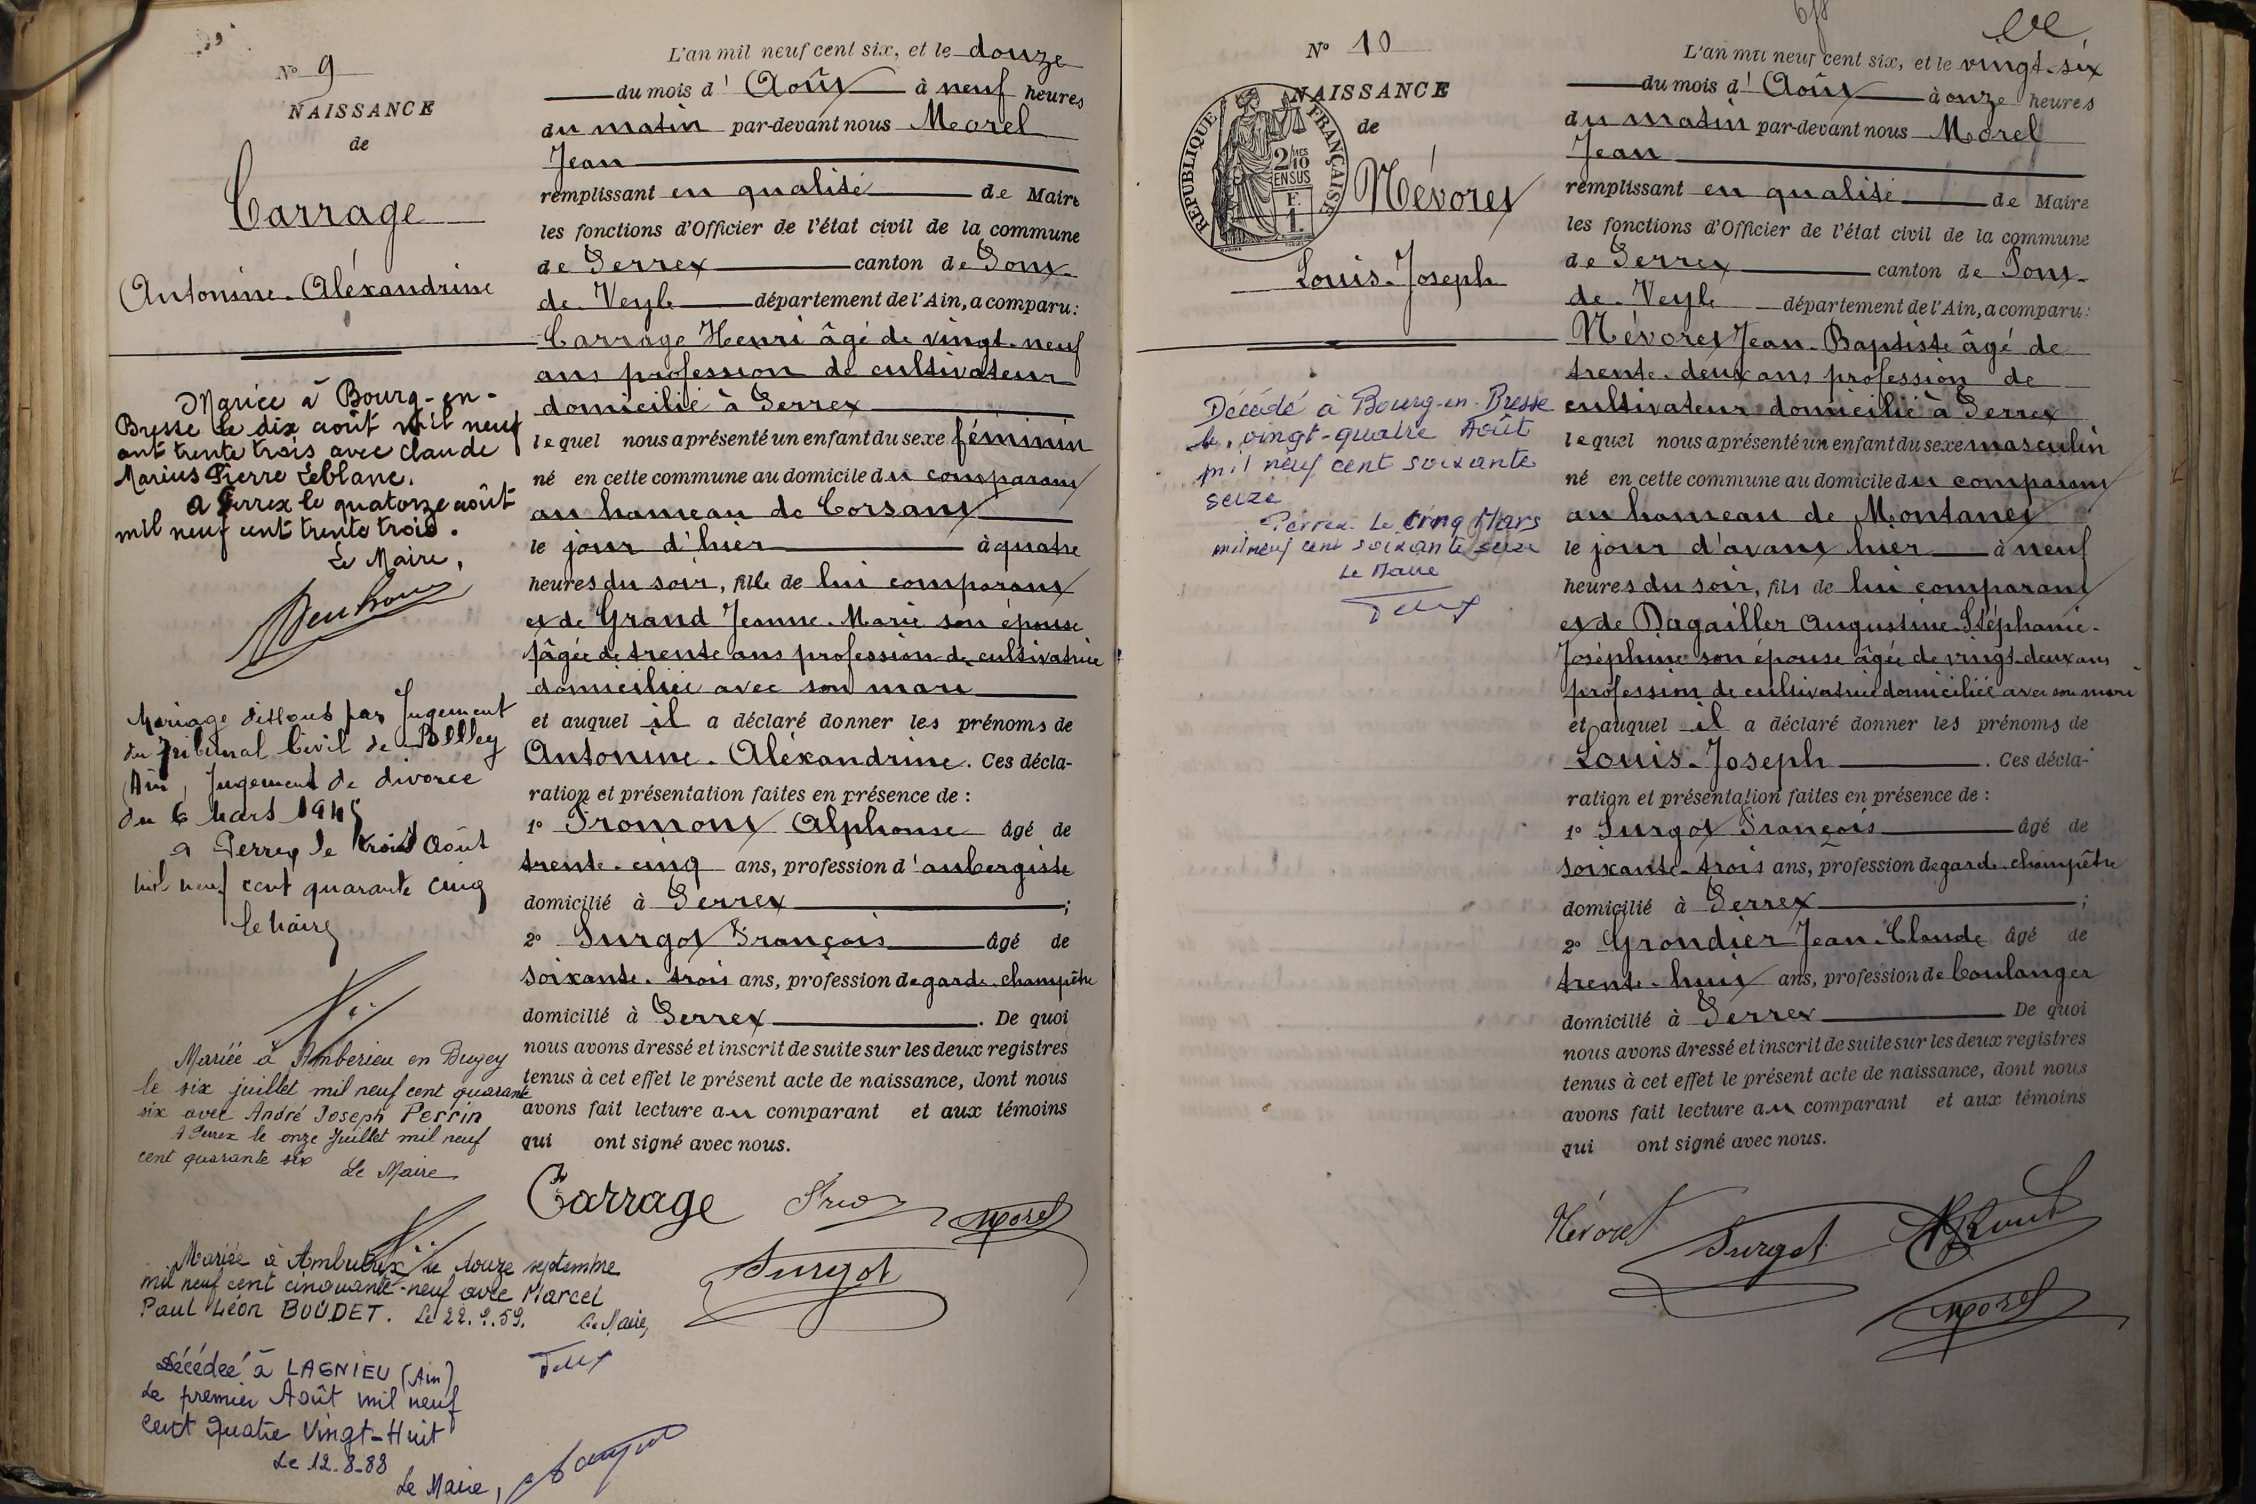 N° 9
NAISSANCE
de
Carrage
Antonine-Aléxandrine
Mariée à Bourg-en-
Bresse le dix août mil neuf
cent trente trois avec Claude
Marius Pierre Leblanc.
A Perrex le quatorze août
mil neuf cent trente trois.
Le Maire,
Mariage dissous par Jugement
du Tribunal Civil de Belley
Ain, Jugement de divorce
du 6 Mars 1945
a Perrex le trois Août
mil neuf cent quarante cinq
le Maire
Mariée à Ambérieu en Bugey
le six juillet mil neuf cent quarante
six avec André Joseph Perrin
A Perrex le onze Juillet mil neuf
cent quarante six
Le Maire
Mariée à le douze septembre
mil neuf cent cinquante-neuf avec Marcel
Paul Léon BOUDET. Le 22.9.59. Le Maire,
Décédée à LAGNIEU (Ain)
Le premier Août mil neuf
cent Quatre Vingt-Huit
Le 12-8-88
Le Maire,
L'an mil neuf cent six, et le douze
du mois d' Août à neuf heures
du matin par-devant nous Morel
Jean
remplissant en qualité de Maire
les fonctions d'Officier de l'état civil de la commune
de Perrex canton de Pont-
de Veyle département de l'Ain, a comparu:
Carrage Henri âgé de vingt-neuf
ans profession de cultivateur
domicilié à Perrex
lequel nous a présenté un enfant du sexe féminin
né en cette commune au domicile du comparant
au hameau de Corsant
le jour d'hier à quatre
heures du soir, fille de lui comparant
et de Grand Jeanne-Marie son épouse
âgée de trente ans profession de cultivatrice
domiciliée avec son mari
et auquel il a déclaré donner les prénoms de
Antonine-Aléxandrine. Ces décla-
ration et présentation faites en présence de :
1° Fromont Alphonse âgé de
trente-cinq ans, profession d'aubergiste
domicilié à Perrex ;
2° Surgot François âgé de
soixante-trois ans, profession de garde-champêtre
domicilié à Perrex. De quoi
nous avons dressé et inscrit de suite sur les deux registres
tenus à cet effet le présent acte de naissance, dont nous
avons fait lecture au comparant et aux témoins
qui ont signé avec nous.
Carrage
Morel
Surgot
N° 10
NAISSANCE
de
REPUBLIQUE FRANÇAISE
2/10
EN SUS
Névoret
Louis-Joseph
Décédé à Bourg-en-Bresse
le vingt-quatre Août
mil neuf cent soixante
seize
Perrex Le cinq Mars
mil neuf cent soixante seize
Le Maire
L'an mil neuf cent six, et le vingt-six
du mois d' Août à onze heures
du matin par-devant nous Morel
Jean
remplissant en qualité de Maire
les fonctions d'Officier de l'état civil de la commune
de Perrex canton de Pont-
de-Veyle département de l'Ain, a comparu:
Névoret Jean-Baptiste âgé de
trente-deux ans profession de
cultivateur domicilié à Perrex
lequel nous a présenté un enfant du sexe masculin
né en cette commune au domicile du comparant
au hameau de Montanet
le jour d'avant hier à neuf
heures du soir, fils de lui comparant
et de Dagailler Augustine-Stéphanie-
Joséphine son épouse âgée de vingt-deux ans
profession de cultivatrice domiciliée avec son mari
et auquel il a déclaré donner les prénoms de
Louis-Joseph. Ces décla-
ration et présentation faites en présence de :
1° Surgot François âgé de
soixante-trois ans, profession de garde-champêtre
domicilié à Perrex ;
2° Grondier Jean-Claude âgé de
trente-huit ans, profession de boulanger
domicilié à Perrex De quoi
nous avons dressé et inscrit de suite sur les deux registres
tenus à cet effet le présent acte de naissance, dont nous
avons fait lecture au comparant et aux témoins
qui ont signé avec nous.
Névoret
Surgot
Morel